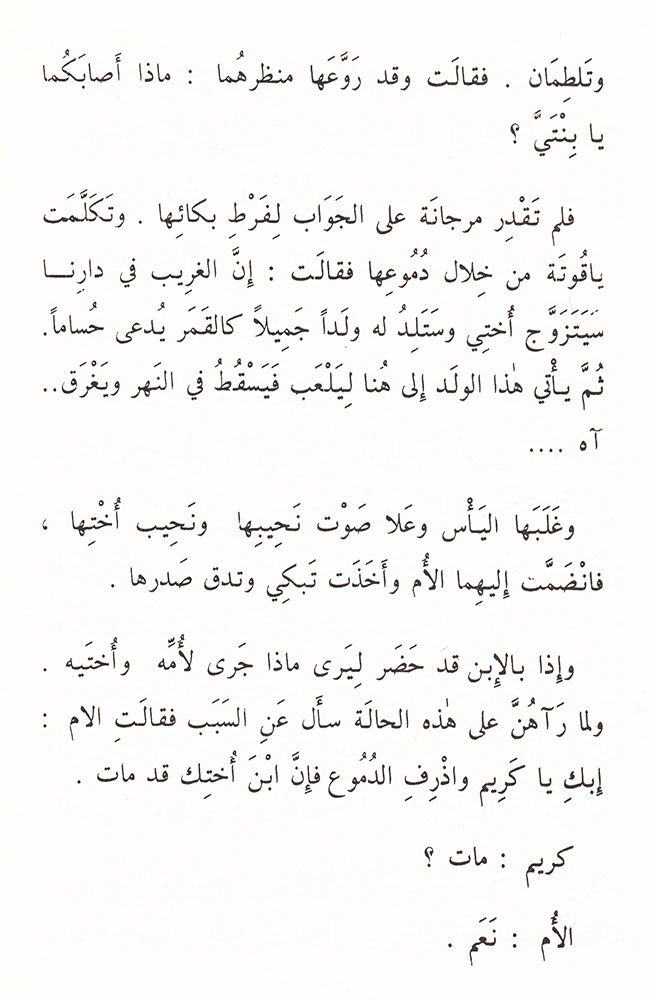 وتَلطِمَان . فقالَت وقد رَوَّعَها منظرهُما : ماذا أَصابَكُما
يا بِنْتَيَّ ؟
فلم تَقْدِر مرجانَة على الجَوَاب لِفَرْطِ بكائِها . وتَكَلَّمَت
ياقُوتَة من خِلال دُمُوعِها فقالَت : إِنَّ الغَرِيب في دارِنـــا
سَيَتَزَوَّج أُختِي وسَتَلِدُ له ولَداً جَمِيلاً كالقَمَر يُدعى حُساماً.
ثُمَّ يأْتي هٰذا الولَد إِلى هُنا لِيَلْعَب فَيَسْقُطُ في النَهر ويَغْرَق..
آه ....
وغَلَبَها اليَأْس وعَلا صَوْت نَحِيبِها ونَحِيب أُخْتِها ،
فانْضَمَّت إِليهِما الأُم وأَخَذَت تَبكِي وتدق صَدرها .
وإِذا بالإِبن قد حَضَر لِيَرى ماذا جَرى لأُمِّه وأُختَيه .
ولما رَآهُنَّ على هٰذه الحالَة سأَل عَنِ السَبَب فقالَتِ الام :
إِبكِ يا كَرِيم واذْرِفِ الدُمُوع فإِنَّ ابْنَ أُختِك قد مات .
كريم : مات ؟
الأُم : نَعَم .